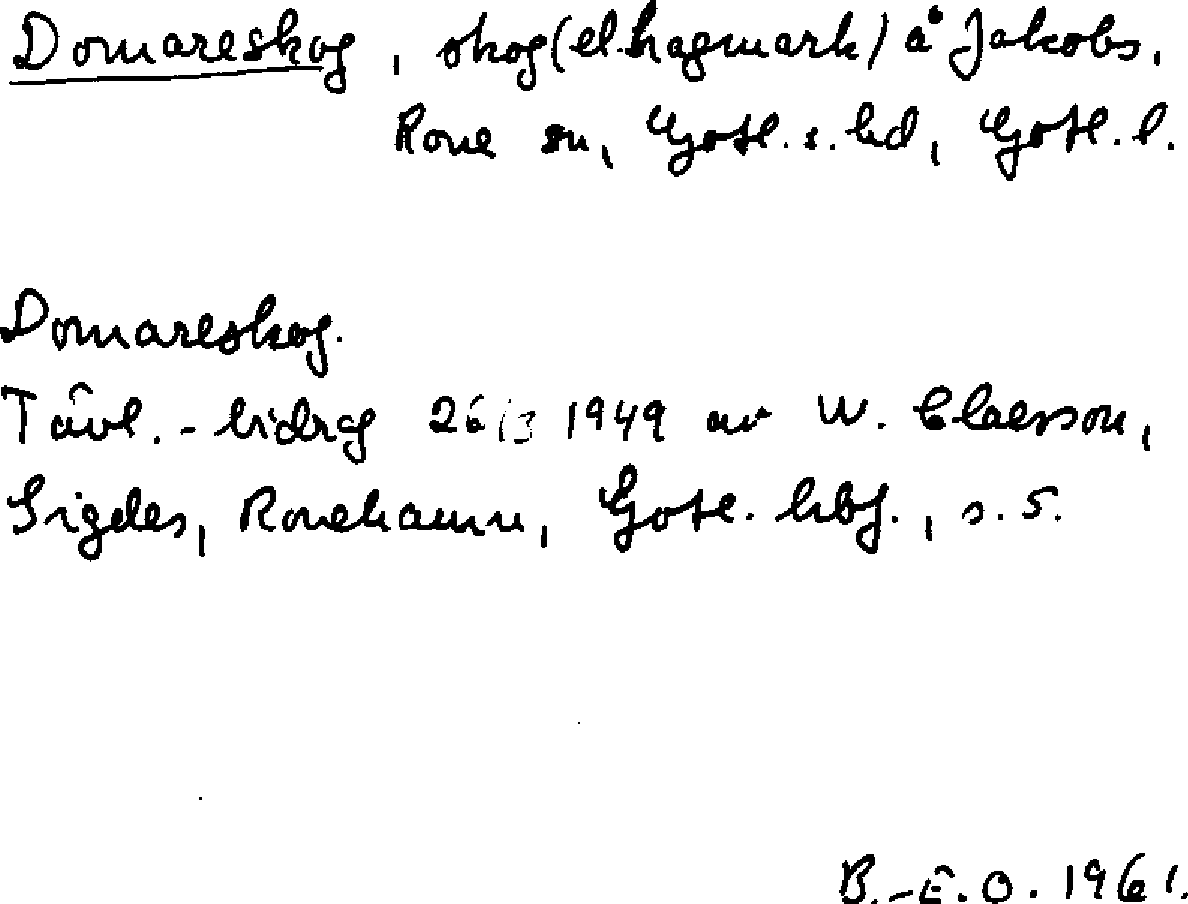 Domareskog, skog (el. hagmark) å Jakobs,
Rone sn, Gotl. s. hd, Gotl. l.
Domareskog.
Tävl.-bidrag 26/3 1949 av W. Claesson,
Sigdes, Ronehamn, Gotl. hbf., s. 5.
B.-E.O. 1961.